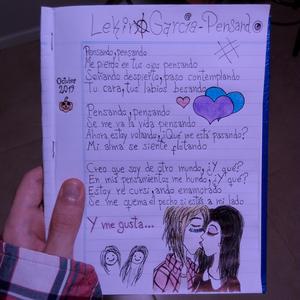 Lekim García - Pensando
Octubre
2019
Pensando, pensando
Me pierdo en tus ojos pensando
Soñando despierto, paso contemplando
Tu cara, tus labios besando
Pensando, pensando
Se me va la vida pensando
Ahora estoy volando, ¿Qué me está pasando?
Mi alma se siente flotando
Creo que soy de otro mundo, ¿Y qué?
En mis pensamientos me hundo, ¿Y qué?
Estoy re cursi, ando enamorado
Se me quema el pecho si estás a mi lado
Y me gusta...